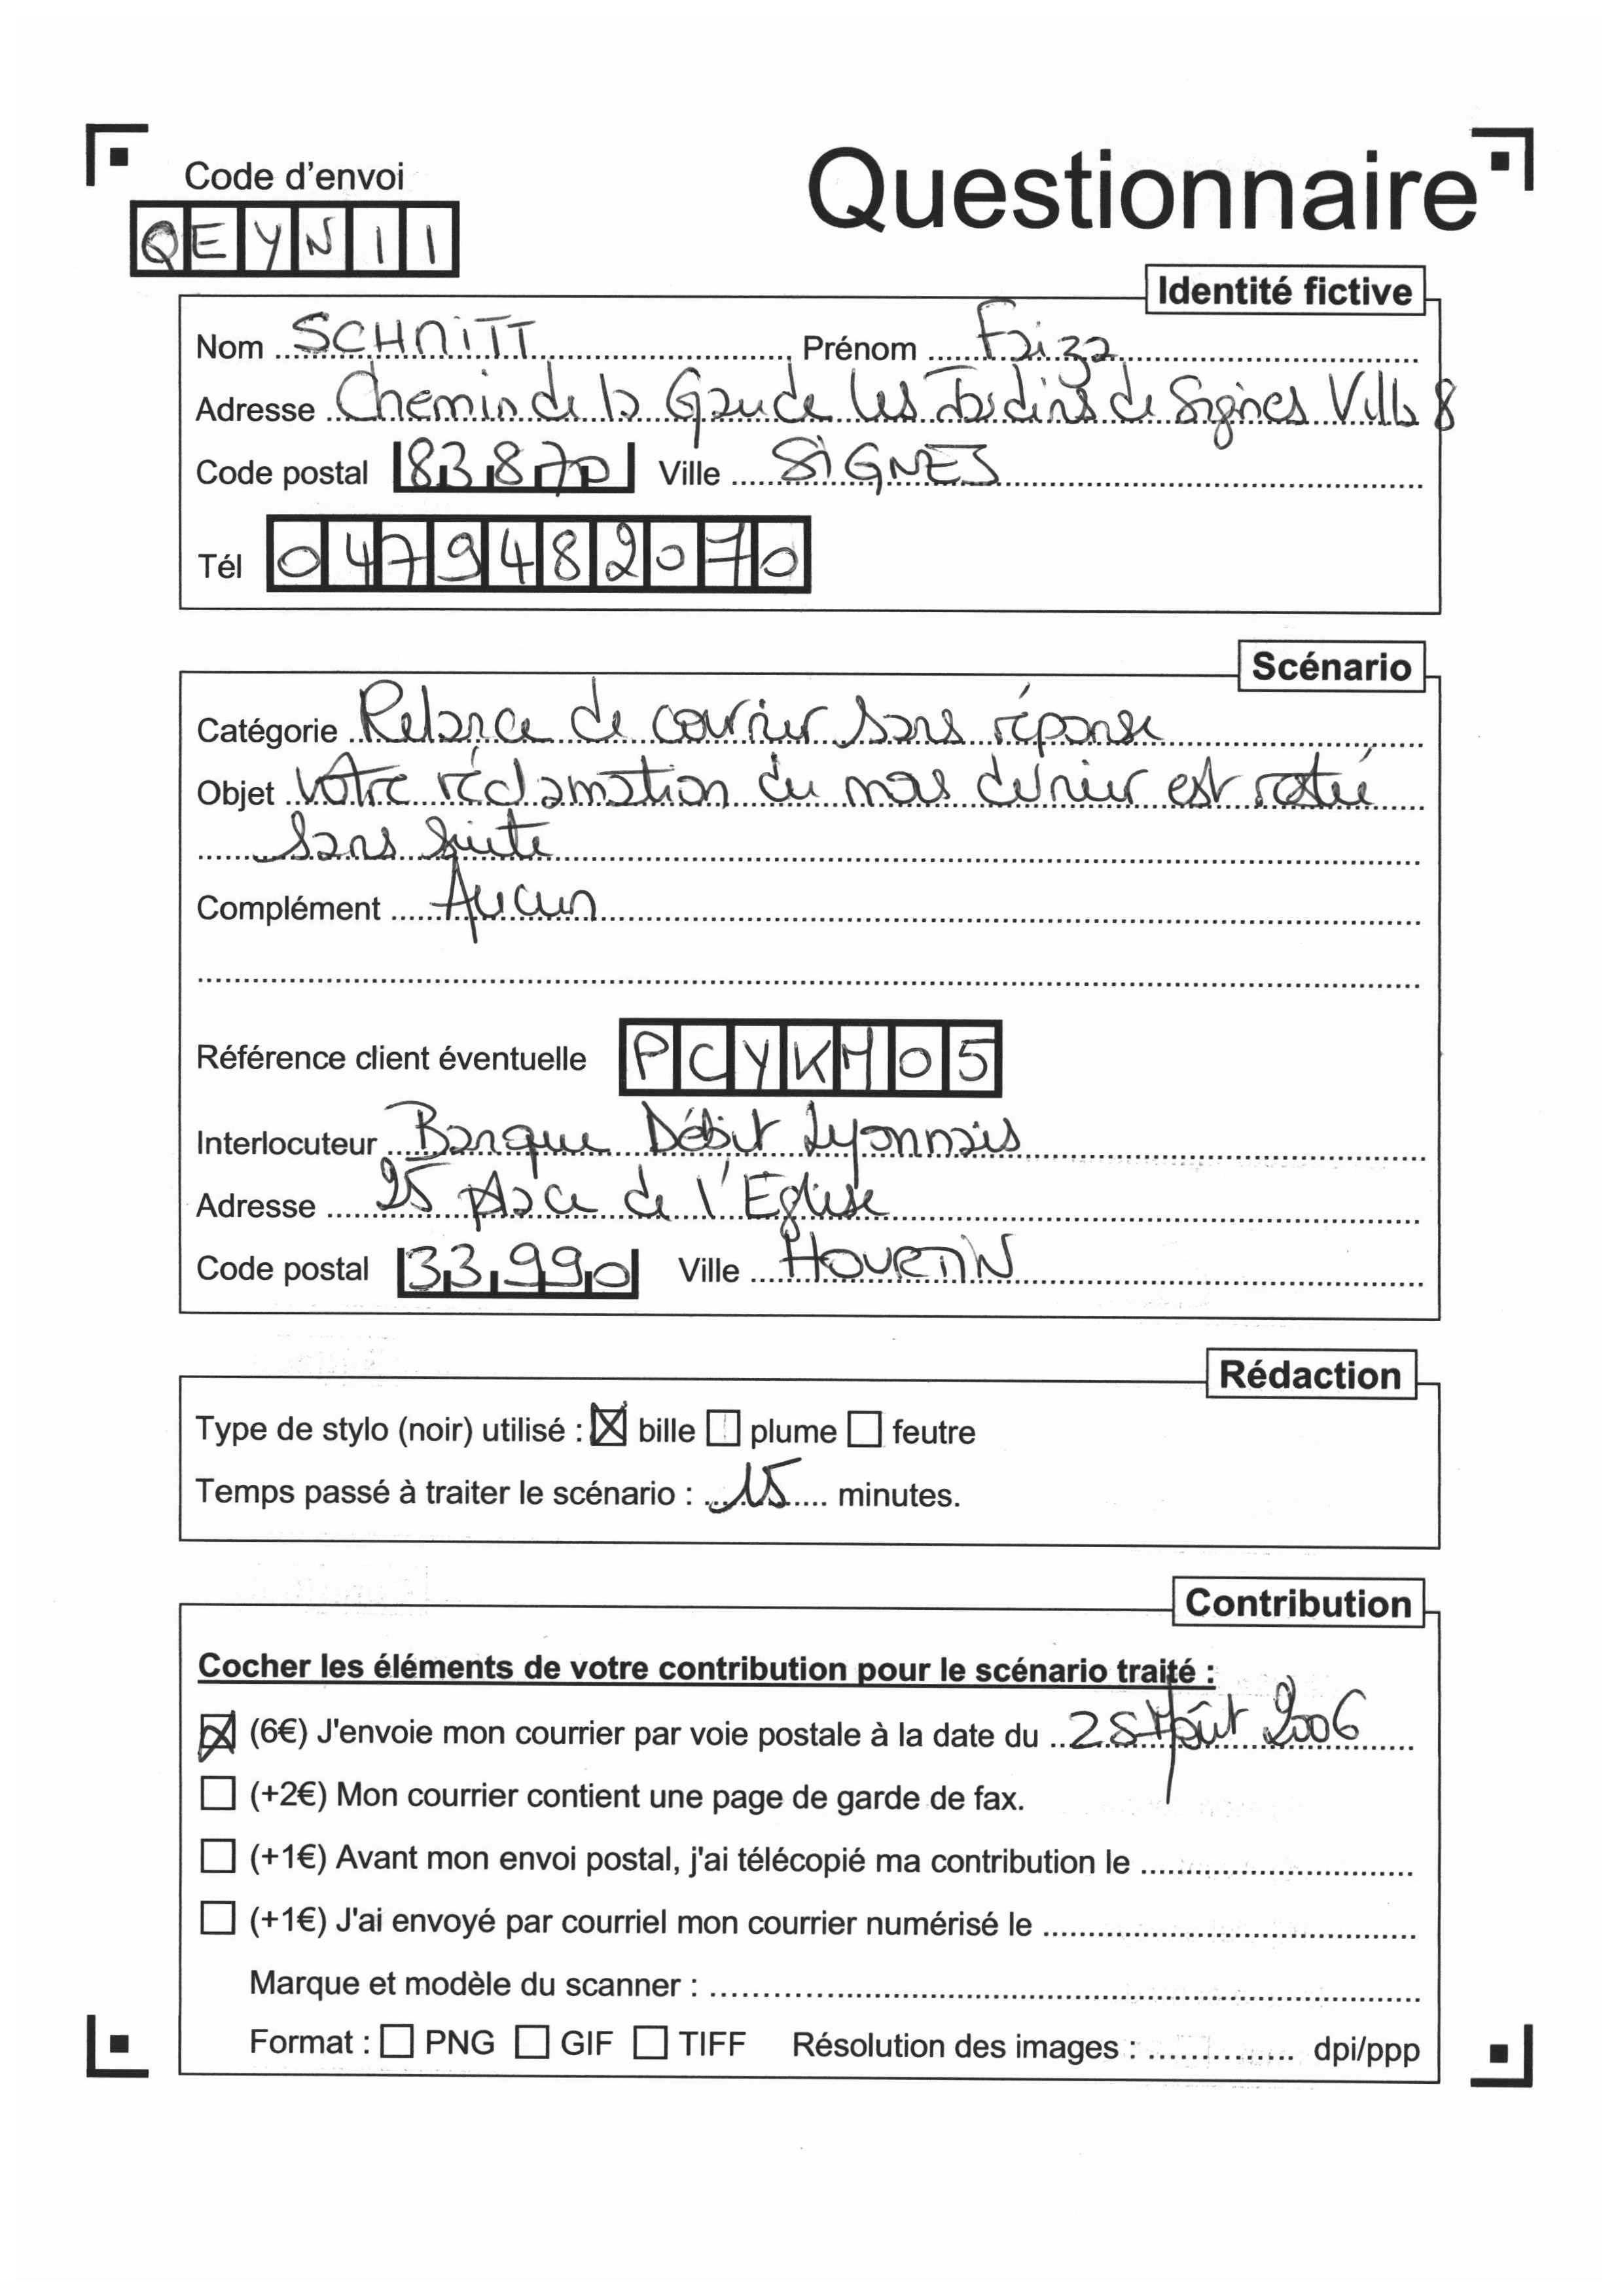 Questionnaire
Code d'envoi
QEYN11
Identité fictive
Nom SCHMITT Prénom Faiza
Adresse Chemin de la Gaude Les Jardins de Signes Villa 8
Code postal 83870 Ville SIGNES
Tél 0479482070
Scénario
Catégorie Relance de courrier sans réponse
Objet Votre réclamation du mois dernier est restée
sans suite
Complément Aucun
Référence client éventuelle PCYKM05
Interlocuteur Banque Débit Lyonnais
Adresse 25 place de l'Eglise
Code postal 33990 Ville HOURTIN
Rédaction
Type de stylo (noir) utilisé : ☒ bille ☐ plume ☐ feutre
Temps passé à traiter le scénario : 15 minutes.
Contribution
Cocher les éléments de votre contribution pour le scénario traité :
☒ (6€) J'envoie mon courrier par voie postale à la date du 28 Août 2006
☐ (+2€) Mon courrier contient une page de garde de fax.
☐ (+1€) Avant mon envoi postal, j'ai télécopié ma contribution le
☐ (+1€) J'ai envoyé par courriel mon courrier numérisé le
Marque et modèle du scanner :
Format : ☐ PNG ☐ GIF ☐ TIFF Résolution des images : dpi/ppp